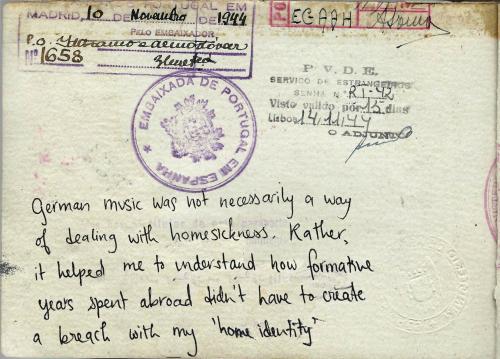 PORTUGAL EM
MADRID, 10 DE Novembro DE 1944
PELO EMBAIXADOR,
P.O.
Nº 1658
EGARH
P. V. D. E.
SERVIÇO DE ESTRANGEIROS
SENHA N.º RT-42
Visto valido por 15 dias
Lisboa 14/11/44
O ADJUNTO
* EMBAIXADA DE PORTUGAL EM ESPANHA
German music was not necessarily a way
of dealing with homesickness. Rather,
it helped me to understand how formative
years spent abroad didn't have to create
a breach with my 'home identity'